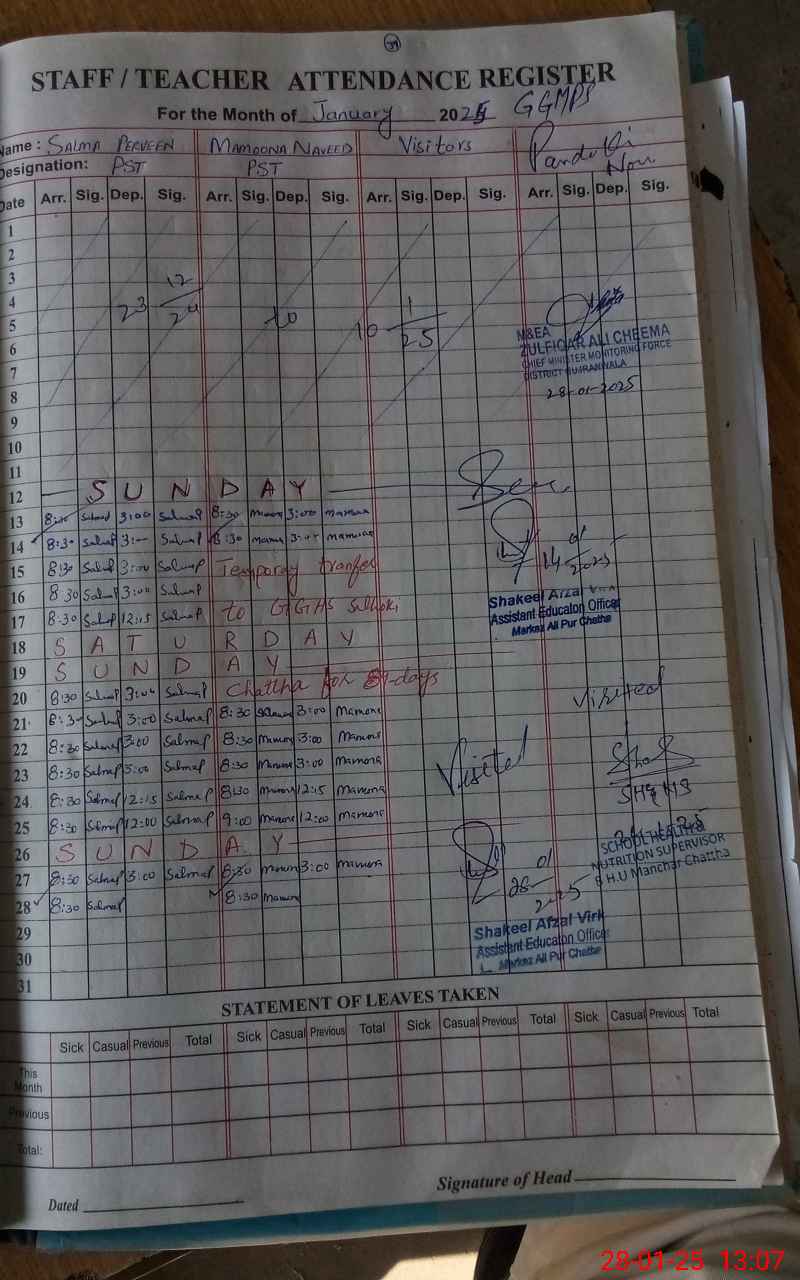 STAFF / TEACHER ATTENDANCE REGISTER
For the Month of January 2025 GGMPS
Name: SALMA PERVEEN MAMOONA NAVEED Visitors Pandoki Nou
Designation: PST PST
Date Arr. Sig. Dep. Sig. Arr. Sig. Dep. Sig. Arr. Sig. Dep. Sig. Arr. Sig. Dep. Sig.
1
2
3
4 23 12/24 to 10 1/25
5
6 M&EA
ZULFIQAR ALI CHEEMA
CHIEF MINISTER MONITORING FORCE
7 DISTRICT GUJRANWALA
8 28-01-2025
9
10
11
12 SUNDAY
13 8:30 Salmap 3:00 Salmap 8:30 Mamona 3:00 Mamona
14 8:30 Salmap 3:00 Salmap 8:30 Mamona 3:00 Mamona 14 01 2025
15 8:30 Salmap 3:00 Salmap Temporary tranfer
16 8:30 Salmap 3:00 Salmap
Shakeel Afzal Virk
17 8:30 Salmap 12:15 Salmap to GGHS
Assistant Educaton Officer
Markaz Ali Pur Chatha
18 SATURDAY
19 SUNDAY
20 8:30 Salmap 3:00 Salmap Chattha for days
21 8:30 Salmap 3:00 Salmap 8:30 Mamona 3:00 Mamona Visited
22 8:30 Salmap 3:00 Salmap 8:30 Mamona 3:00 Mamona
23 8:30 Salmap 3:00 Salmap 8:30 Mamona 3:00 Mamona Visited
24 8:30 Salmap 12:15 Salmap 8:30 Mamona 12:15 Mamona SH&NS
25 8:30 Salmap 12:00 Salmap 9:00 Mamona 12:00 Mamona
26 SUNDAY
SCHOOL HEALTH &
NUTRITION SUPERVISOR
B.H.U Manchar Chattha
27 8:30 Salmap 3:00 Salmap 8:30 Mamona 3:00 Mamona
28 8:30 Salmap 8:30 Mamona 28 01 2025
29 Shakeel Afzal Virk
30 Assistant Educaton Officer
Markaz Ali Pur Chatha
31
STATEMENT OF LEAVES TAKEN
Sick Casual Previous Total Sick Casual Previous Total Sick Casual Previous Total Sick Casual Previous Total
This
Month
Previous
Total:
Signature of Head
Dated
28-01-25 13:07